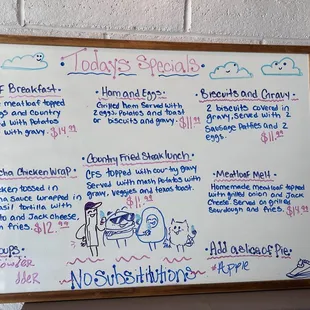 Todays Specials
F Breakfast
meatloaf topped
ggs and Country
ved with Potatoes
with gravy. $14.99
Ham and Eggs
Grilled Ham Served with
2 eggs, Potatos and toast
or biscuits and gravy. $11.99
Biscuits and Gravy
2 biscuits covered in
gravy, Served with 2
Sausage Patties and 2
eggs. $11.99
cha Chicken Wrap
cken tossed in
cha Sauce wrapped in
asil tortilla with
to and Jack cheese,
h fries. $12.99
Country Fried Steak lunch
CFS topped with country gravy
Served with mash Potatos with
gravy, Veggies and Texas toast.
$11.99
Meatloaf Melt
Homemade meatloaf topped
with grilled onion and Jack
Cheese. Served on grilled
Sourdough and fries. $14.99
oups
owder
dder
No Substitutions
Add a slice of Pie
Apple